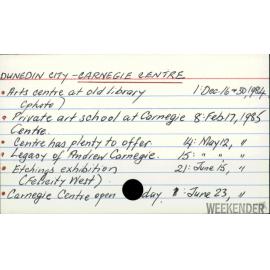 DUNEDIN CITY - CARNEGIE CENTRE
• Arts centre at old library 1: Dec. 16 30, 1984
(photo)
• Private art school at Carnegie 8: Feb 17, 1985
Centre.
• Centre has plenty to offer 14: May 12, "
• Legacy of Andrew Carnegie. 15: " " "
• Etchings exhibition 21: June 15, "
(Felicity West)
• Carnegie Centre open day. 1: June 23, "
WEEKENDER